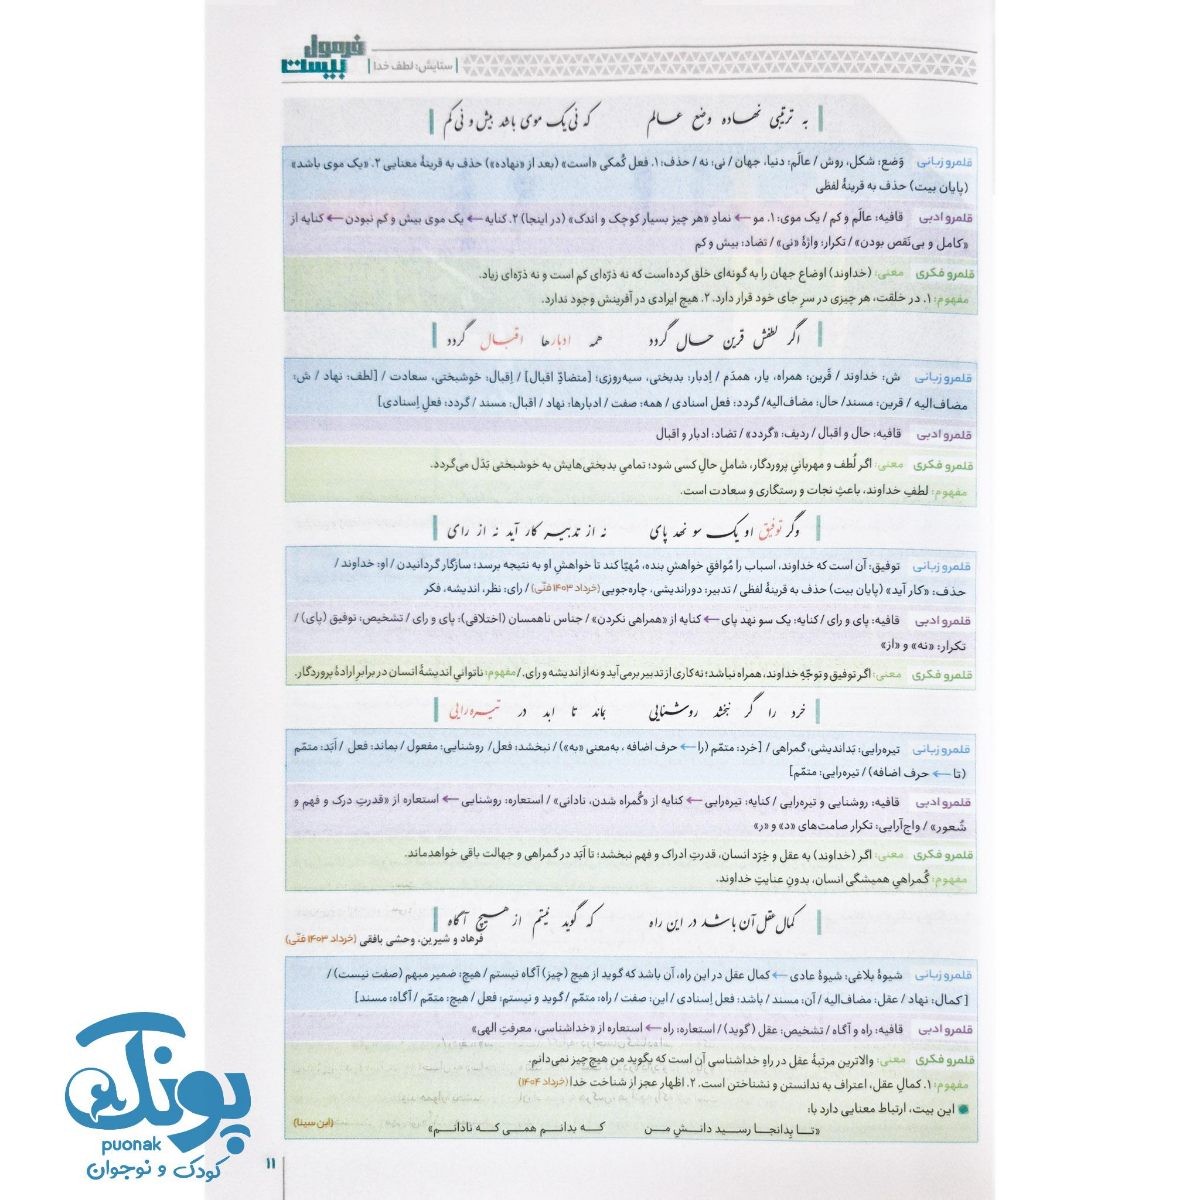 فرمول
بیست
ستایش: لطف خدا
به ترتیبی نهاده وضع عالم که نی یک موی باشد بیش و نی کم
قلمرو زبانی وَضع: شکل، روش / عالَم: دنیا، جهان / نی: نه / حذف: ۱. فعل کُمکی «است» (بعد از «نهاده») حذف به قرینهٔ معنایی ۲. «یک موی باشد»
(پایان بیت) حذف به قرینهٔ لفظی
قلمرو ادبی قافیه: عالَم و کم / یک موی: ۱. مو ← نمادِ «هر چیز بسیار کوچک و اندک» (در اینجا) ۲. کنایه ← یک موی بیش و کم نبودن ← کنایه از
«کامل و بی‌نَقص بودن» / تکرار: واژهٔ «نی» / تضاد: بیش و کم
قلمرو فکری معنی: (خداوند) اوضاع جهان را به گونه‌ای خلق کرده‌است که نه ذرّه‌ای کم است و نه ذرّه‌ای زیاد.
مفهوم: ۱. در خلقت، هر چیزی در سرِ جای خود قرار دارد. ۲. هیچ ایرادی در آفرینش وجود ندارد.
اگر لطفش قرین حال گردد همه ادبارها اقبال گردد
قلمرو زبانی ش: خداوند / قَرین: همراه، یار، همدَم / اِدبار: بدبختی، سیه‌روزی؛ [متضادِّ اقبال] / اِقبال: خوشبختی، سعادت / [لطف: نهاد / ش:
مضاف‌الیه / قرین: مسند/ حال: مضاف‌الیه/ گردد: فعل اسنادی / همه: صفت / ادبارها: نهاد / اقبال: مسند / گردد: فعلِ اِسنادی]
قلمرو ادبی قافیه: حال و اقبال / ردیف: «گردد» / تضاد: ادبار و اقبال
قلمرو فکری معنی: اگر لُطف و مهربانیِ پروردگار، شاملِ حالِ کسی شود؛ تمامیِ بدبختی‌هایش به خوشبختی بَدَل می‌گردد.
مفهوم: لطفِ خداوند، باعثِ نجات و رستگاری و سعادت است.
وگر توفیق او یک سو نهد پای نه از تدبیر کار آید نه از رای
قلمرو زبانی توفیق: آن است که خداوند، اسباب را مُوافقِ خواهشِ بنده، مُهیّا کند تا خواهشِ او به نتیجه برسد؛ سازگار گردانیدن / او: خداوند /
حذف: «کار آید» (پایان بیت) حذف به قرینهٔ لفظی / تدبیر: دوراندیشی، چاره‌جویی (خرداد ۱۴۰۳ فنّی) / رای: نظر، اندیشه، فکر
قلمرو ادبی قافیه: پای و رای / کنایه: یک سو نهد پای ← کنایه از «همراهی نکردن» / جناس ناهمسان (اختلافی): پای و رای / تشخیص: توفیق (پای) /
تکرار: «نه» و «از»
قلمرو فکری معنی: اگر توفیق و توجّهِ خداوند، همراه نباشد؛ نه کاری از تدبیر برمی‌آید و نه از اندیشه و رای. / مفهوم: ناتوانیِ اندیشهٔ انسان در برابرِ ارادهٔ پروردگار.
خرد را گر نبخشد روشنایی بماند تا ابد در تیره‌رایی
قلمرو زبانی تیره‌رایی: بَداندیشی، گمراهی / [خرد: متمّم (را ← حرف اضافه، به‌معنی «به») / نبخشد: فعل/ روشنایی: مفعول / بماند: فعل / اَبَد: متمّم
(تا ← حرف اضافه) / تیره‌رایی: متمّم]
قلمرو ادبی قافیه: روشنایی و تیره‌رایی / کنایه: تیره‌رایی ← کنایه از «گُمراه شدن، نادانی» / استعاره: روشنایی ← استعاره از «قدرتِ درک و فهم و
شُعور» / واج‌آرایی: تکرار صامت‌های «د» و «ر»
قلمرو فکری معنی: اگر (خداوند) به عقل و خِرَد انسان، قدرتِ ادراک و فهم نبخشد؛ تا اَبَد در گمراهی و جهالت باقی خواهدماند.
مفهوم: گُمراهیِ همیشگی انسان، بدونِ عنایتِ خداوند.
کمال عقل آن باشد در این راه که گوید نیستم از هیچ آگاه
فرهاد و شیرین، وحشی بافقی (خرداد ۱۴۰۳ فنّی)
قلمرو زبانی شیوهٔ بلاغی: شیوهٔ عادی ← کمال عقل در این راه، آن باشد که گوید از هیچ (چیز) آگاه نیستم / هیچ: ضمیر مبهم (صفت نیست) /
[ کمال: نهاد / عقل: مضاف‌الیه / آن: مسند / باشد: فعل اِسنادی / این: صفت / راه: متمّم / گوید و نیستم: فعل / هیچ: متمّم / آگاه: مسند]
قلمرو ادبی قافیه: راه و آگاه / تشخیص: عقل (گوید) / استعاره: راه ← استعاره از «خداشناسی، معرفتِ الهی»
قلمرو فکری معنی: والاترین مرتبهٔ عقل در راهِ خداشناسی آن است که بگوید من هیچ چیز نمی‌دانم.
مفهوم: ۱. کمالِ عقل، اعتراف به ندانستن و نشناختن است. ۲. اظهار عجز از شناخت خدا (خرداد ۱۴۰۴)
این بیت، ارتباط معنایی دارد با:
«تا بدانجا رسید دانشِ من که بدانم همی که نادانم» (ابن سینا)
۱۱
پونک
puonak
کودک و نوجوان